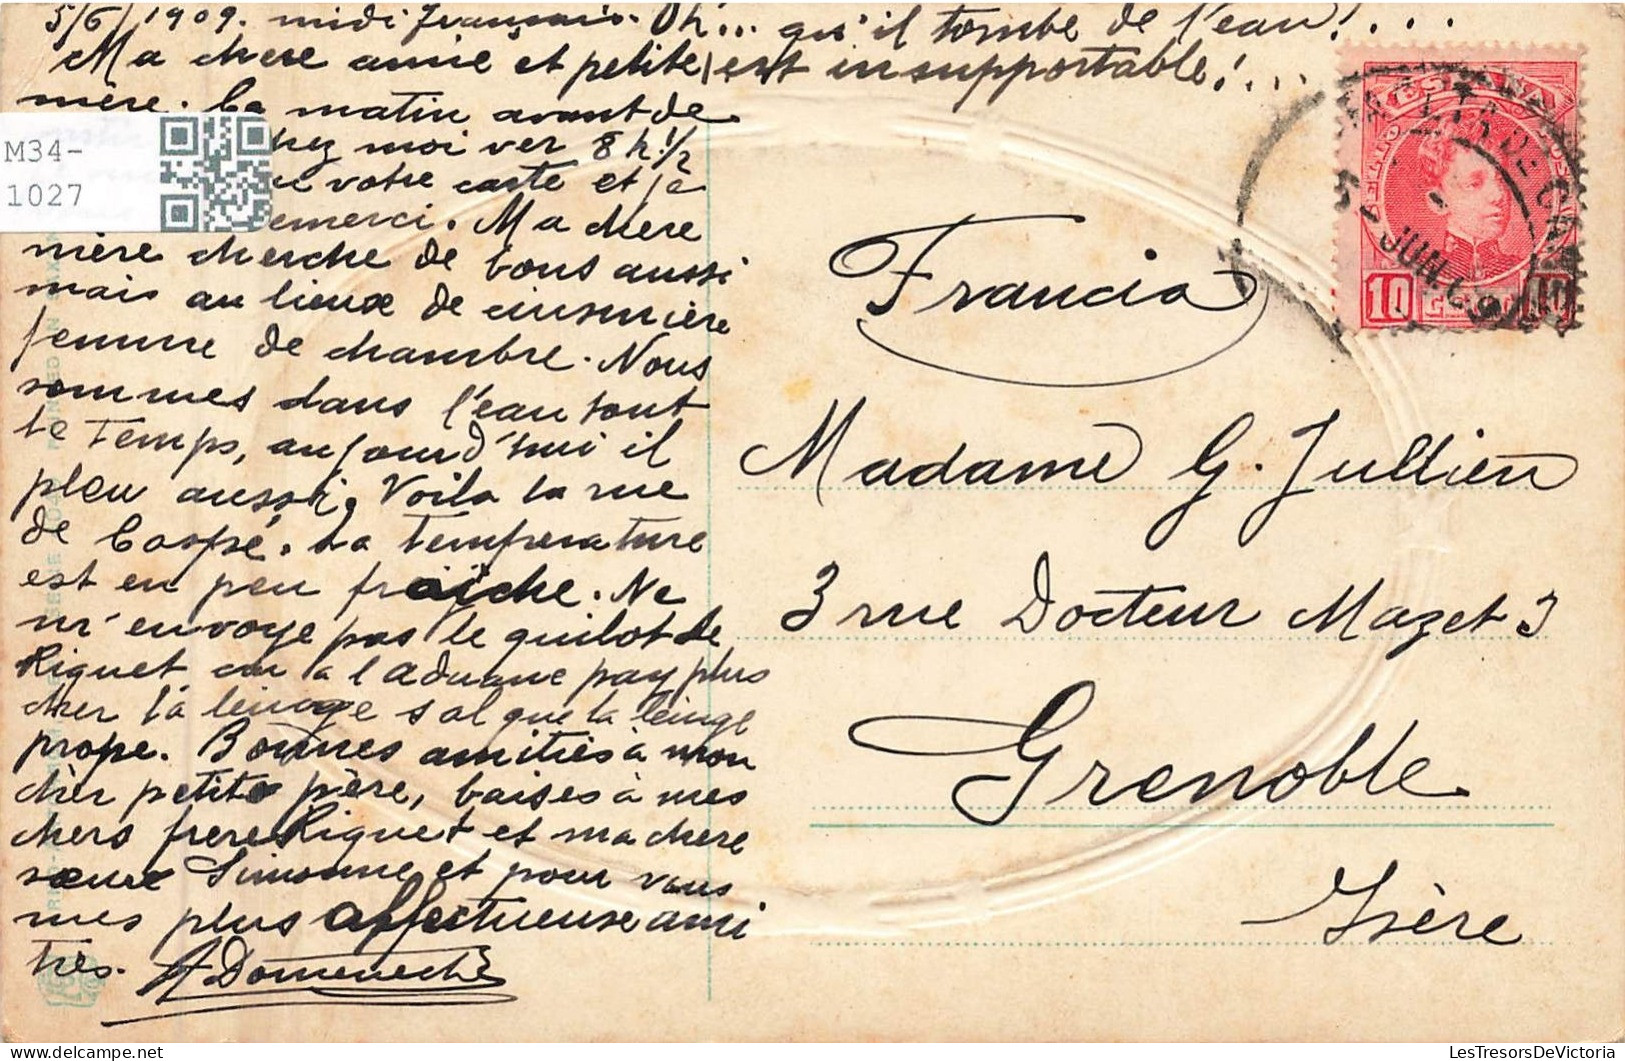 5/6/1909. midi français. Oh... qu'il tombe de l'eau!...
Ma chere amie et petite est insupportable!...
mère. La matin avant de
chez moi ver 8 h 1/2
votre carte et jà
remerci. Ma chere
mère cherche de bons aussi
mais au lieux de cuisinière
femme de chambre. Nous
sommes dans l'eau tout
le temps, aujourd'hui il
pleu aussi. Voila la rue
de Caspe. La temperature
est en peu fraîche. Ne
m'envoye pas le guilot de
Riquet car a l'aduane pay plus
cher la leinge sal que la leinge
prope. Bonnes amitiès à mon
chèr petite père, baises à mes
chers frere Riquet et ma chere
sœure Simonne et pour vous
mes plus affectueuse ami
tiès. A Domenech
M34-
1027
ESPAÑA
10 CENT. 10
JUN. 09
Francia
Madame G. Jullien
3 rue Docteur Mazet 3
Grenoble
Isère
LesTresorsDeVictoria